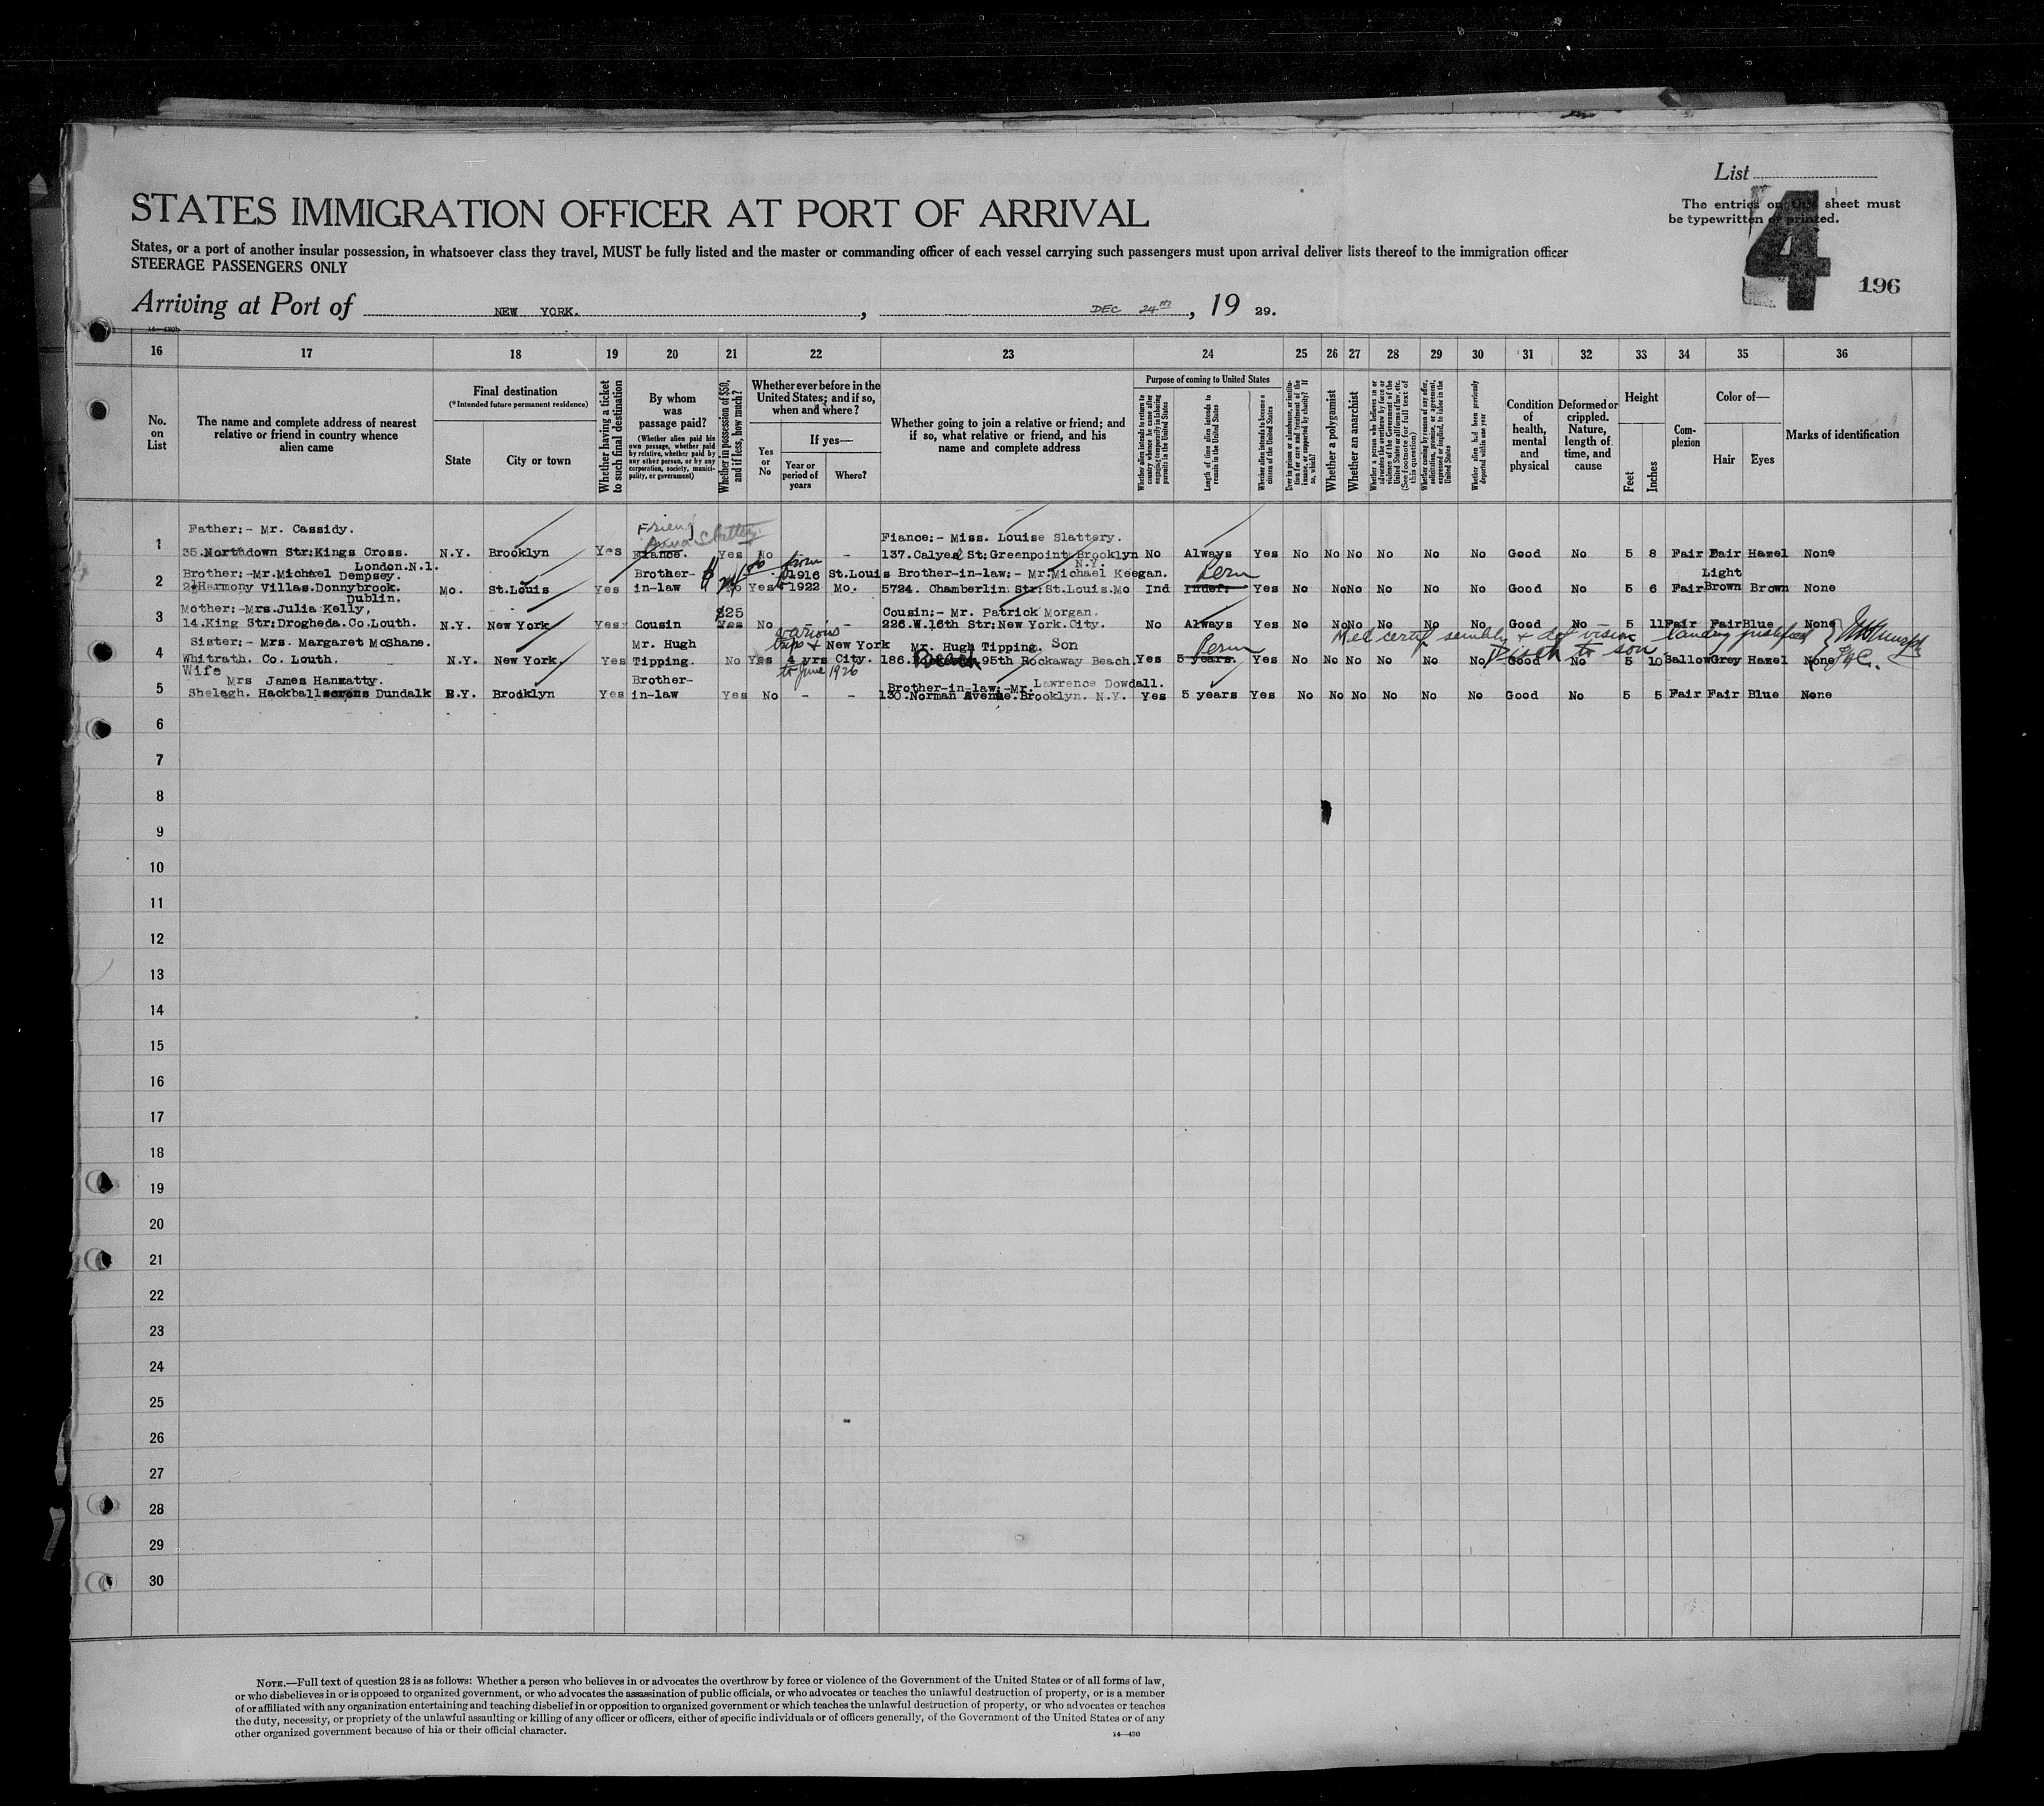 List
The entries on this sheet must
be typewritten or printed.
4
196
STATES IMMIGRATION OFFICER AT PORT OF ARRIVAL
States, or a port of another insular possession, in whatsoever class they travel, MUST be fully listed and the master or commanding officer of each vessel carrying such passengers must upon arrival deliver lists thereof to the immigration officer
STEERAGE PASSENGERS ONLY
Arriving at Port of NEW YORK. , DEC 24th , 19 29.
14—430
16 17 18 19 20 21 22 23 24 25 26 27 28 29 30 31 32 33 34 35 36
No. on List
The name and complete address of nearest relative or friend in country whence alien came
Final destination
(*Intended future permanent residence)
State
City or town
Whether having a ticket to such final destination
By whom was passage paid?
(Whether alien paid his own passage, whether paid by relative, whether paid by any other person, or by any corporation, society, municipality, or government)
Whether in possession of $50, and if less, how much?
Whether ever before in the United States; and if so, when and where?
Yes or No
If yes—
Year or period of years
Where?
Whether going to join a relative or friend; and if so, what relative or friend, and his name and complete address
Purpose of coming to United States
Whether alien intends to return to country whence he came after engaging temporarily in laboring pursuits in the United States
Length of time alien intends to remain in the United States
Whether alien intends to become a citizen of the United States
Ever in prison or almshouse, or institution for care and treatment of the insane, or supported by charity? If so, which?
Whether a polygamist
Whether an anarchist
Whether a person who believes in or advocates the overthrow by force or violence of the Government of the United States or all forms of law, etc. (See footnote for full text of this question)
Whether coming by reason of any offer, solicitation, promise, or agreement, expressed or implied, to labor in the United States
Whether alien had been previously deported within one year
Condition of health, mental and physical
Deformed or crippled. Nature, length of time, and cause
Height
Feet
Inches
Complexion
Color of—
Hair
Eyes
Marks of identification
Father:- Mr. Cassidy. Friend Anna Slattery Fiance:- Miss. Louise Slattery.
1 35.Northdown Str:Kings Cross. N.Y. Brooklyn Yes Fiance. Yes No - 137.Calyer St:Greenpoint Brooklyn No Always Yes No No No No No No Good No 5 8 Fair Fair Hazel None
London.N.1. N.Y.
Brother:-Mr.Michael Dempsey. Brother- from 1916 St.Louis Brother-in-law:- Mr.Michael Keegan. Perm Light
2 2 Harmony Villas.Donnybrook. Mo. St.Louis Yes in-law No Yes 1922 Mo. 5724. Chamberlin Str:St.Louis.Mo Ind Indef. Yes No No No No No No Good No 5 6 Fair Brown Brown None
Dublin.
Mother:-Mrs.Julia Kelly, $25 Cousin:- Mr. Patrick Morgan.
3 14.King Str:Drogheda.Co.Louth. N.Y. New York Yes Cousin Yes No - - 226.W.16th Str:New York.City. No Always Yes No No No No No No Good No 5 11 Fair Fair Blue None
Med certif & def vision landing justified
Sister:- Mrs. Margaret McShane. Mr. Hugh various trips + New York Mr. Hugh Tipping. Son Perm Disch to son
4 Whitrath. Co. Louth. N.Y. New York Yes Tipping. No Yes 4 yrs City. 186. Beach 95th Rockaway Beach. Yes 5 years. Yes No No No No No No Good No 5 10 Sallow Grey Hazel None
to June 1926
Wife Mrs James Hanratty. Brother- Brother-in-law:-Mr. Lawrence Dowdall.
5 Shelagh. Hackballscross Dundalk N.Y. Brooklyn Yes in-law Yes No - - 130.Norman Avenue.Brooklyn. N.Y. Yes 5 years Yes No No No No No No Good No 5 5 Fair Fair Blue None
6
7
8
9
10
11
12
13
14
15
16
17
18
19
20
21
22
23
24
25
26
27
28
29
30
NOTE.—Full text of question 28 is as follows: Whether a person who believes in or advocates the overthrow by force or violence of the Government of the United States or of all forms of law,
or who disbelieves in or is opposed to organized government, or who advocates the assassination of public officials, or who advocates or teaches the unlawful destruction of property, or is a member
of or affiliated with any organization entertaining and teaching disbelief in or opposition to organized government or which teaches the unlawful destruction of property, or who advocates or teaches
the duty, necessity, or propriety of the unlawful assaulting or killing of any officer or officers, either of specific individuals or of officers generally, of the Government of the United States or of any
other organized government because of his or their official character.
14—430